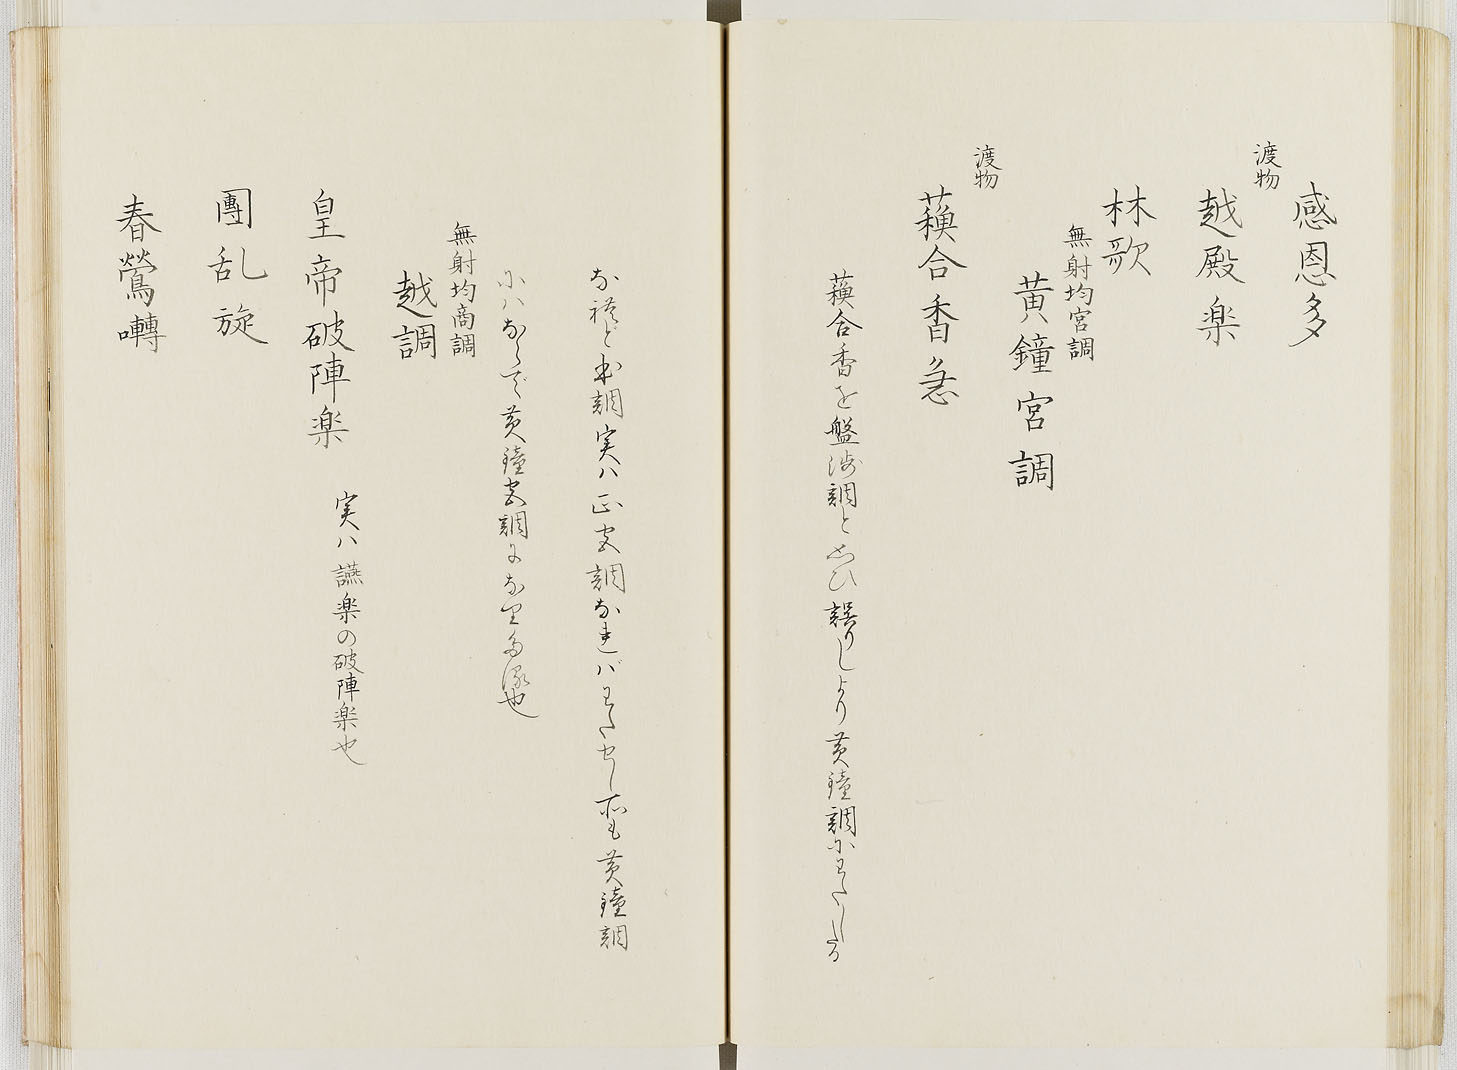 感恩多
渡物
越殿楽
林歌
無射均宮調
黄鐘宮調
渡物
蘓合香急
蘓合香を盤渉調と思ひ誤りしより黄鐘調にわたしたる
なれど本調実ハ正宮調なればわたせし所も黄鐘調
にハあらで黄鐘宮調になりたる也
無射均商調
越調
皇帝破陣楽
実ハ讌楽の破陣楽也
團乱旋
春鶯囀